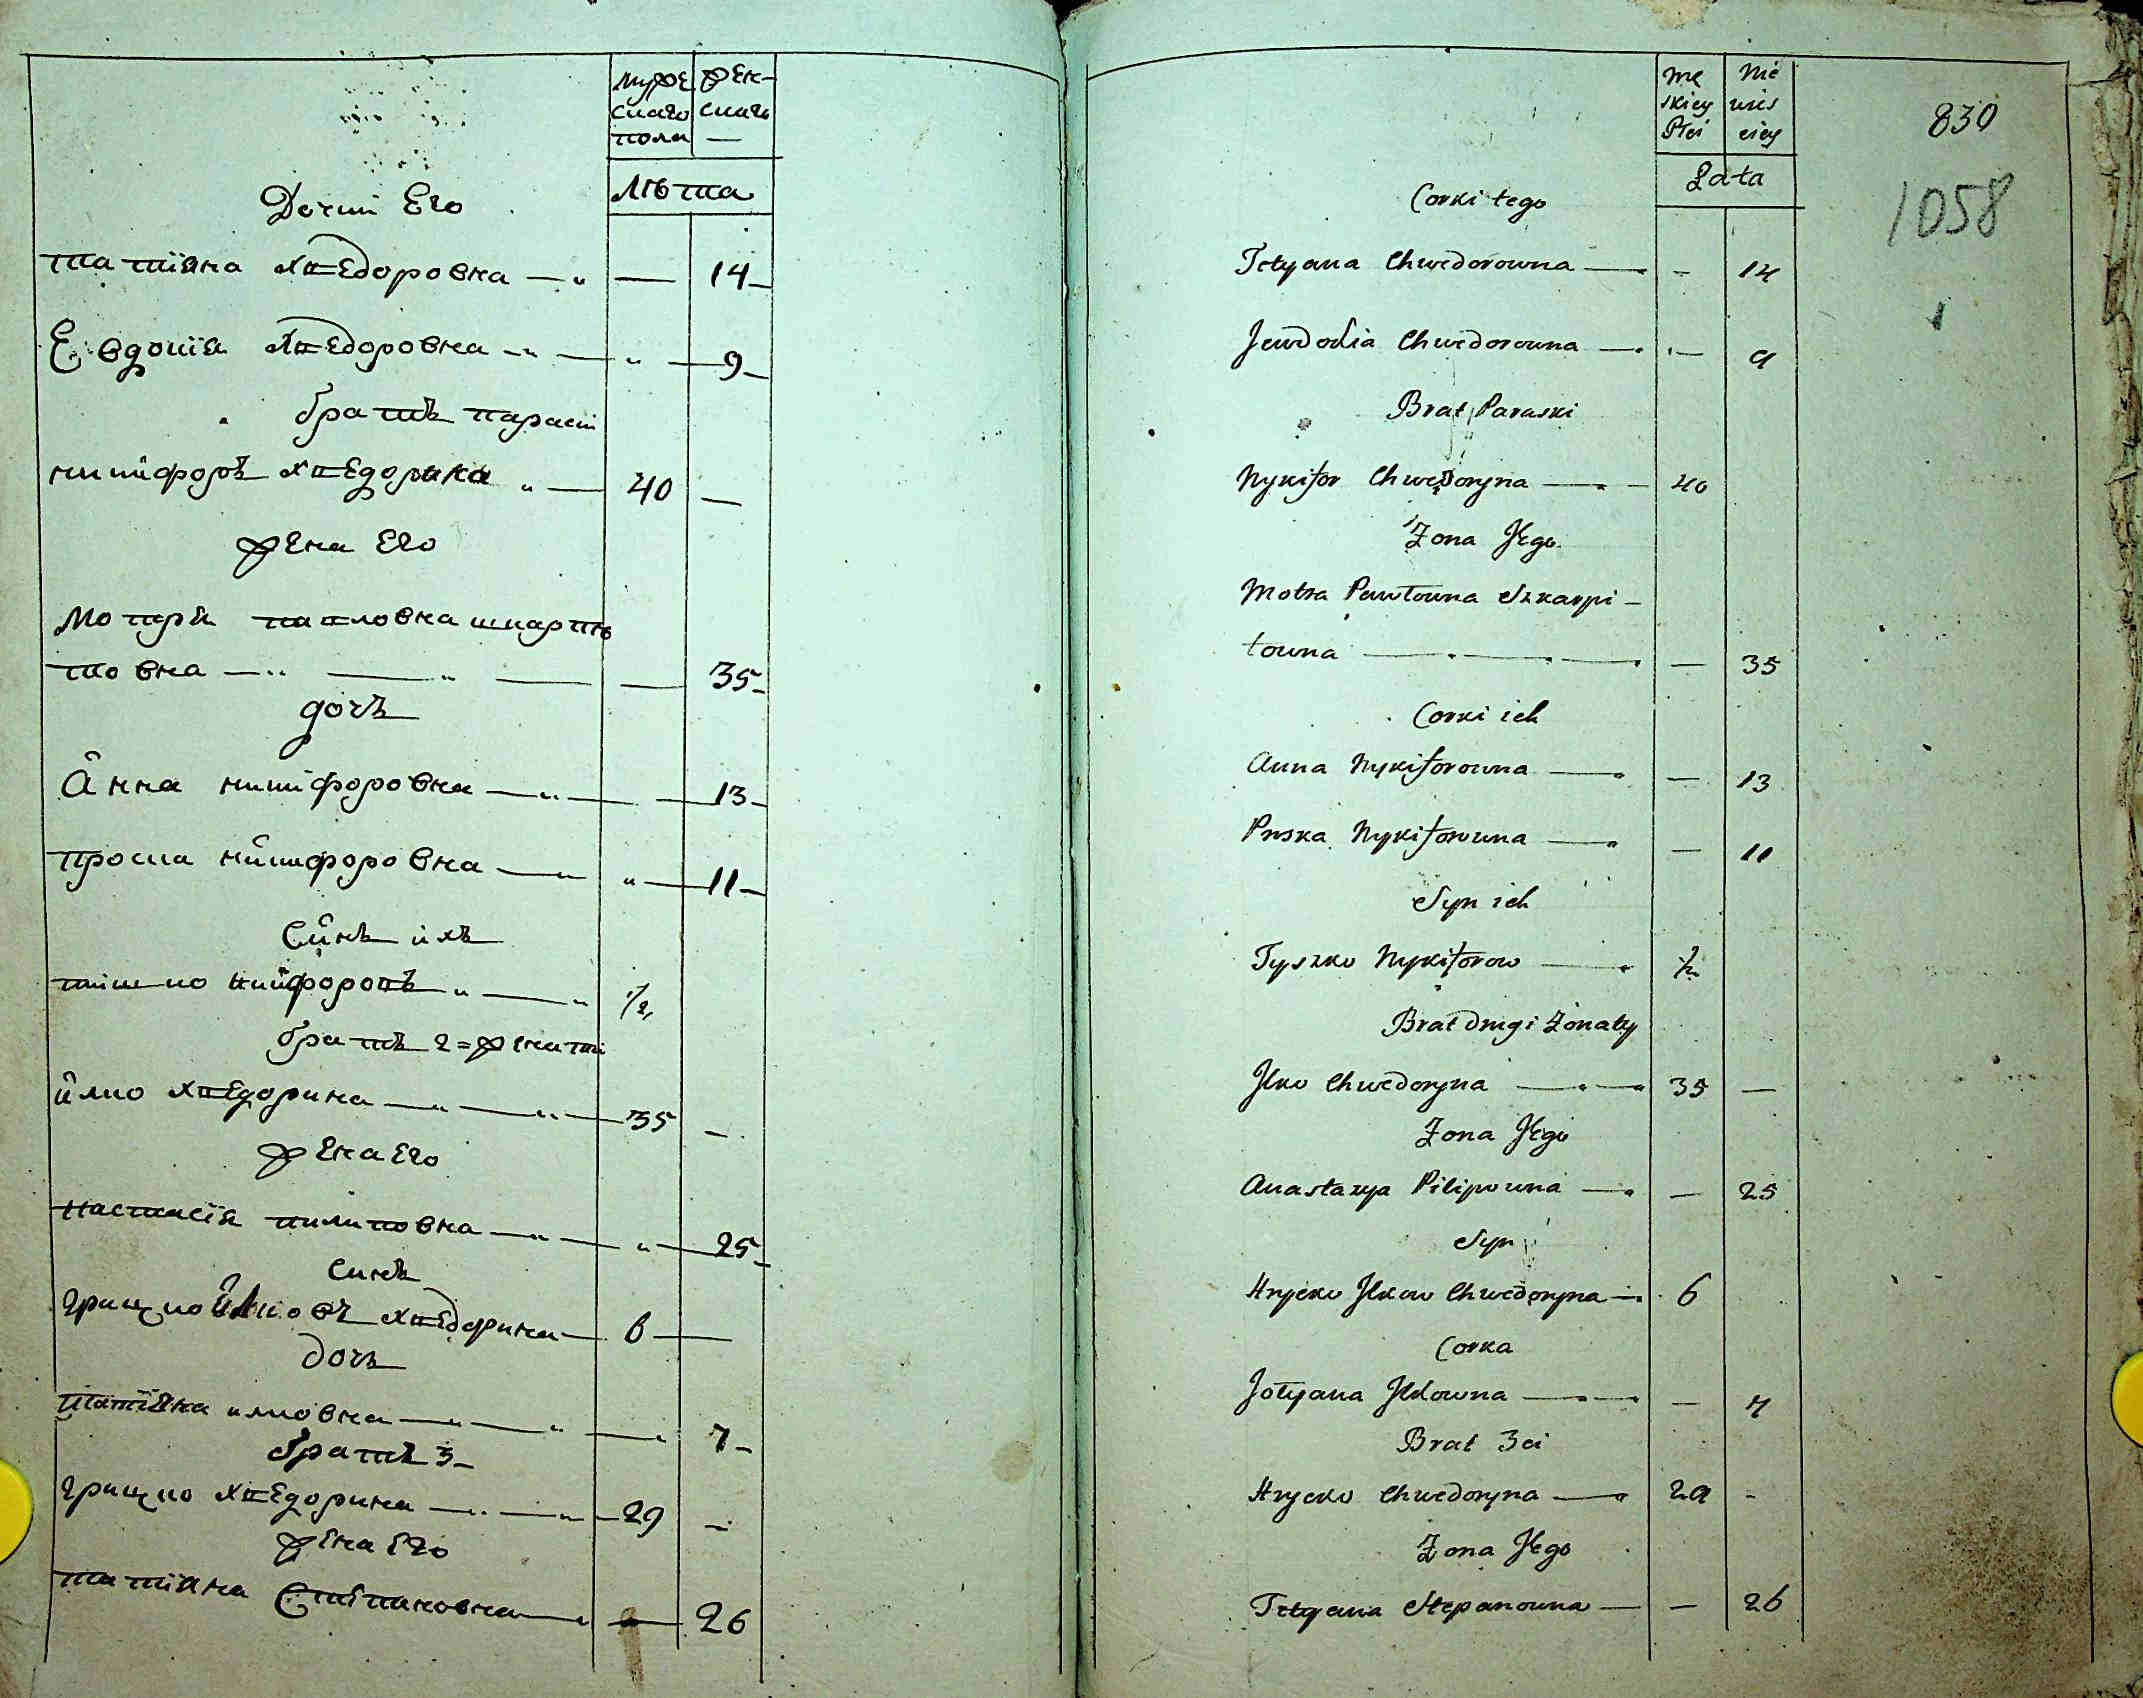 муже жен-
скаго скаго
пола —
лѣта
Дочки Его
татіяна хведоровна — 14
Евдокія хведоровна — 9
братъ параски
никифоръ хведорина — 40 —
жена Его
Мотря павловна шкарпѣ
товна — 35
дочъ
Анна никифоровна — 13
проска никифоровна — 11
Синъ ихъ
тишко никифоровъ — 1/2
братъ 2= женати
илко хведорина — 35 —
жена Его
настасія пилиповна — 25
синъ
грицко илковъ хведорина — 6 —
дочъ
татіяна илковна — 7
братъ 3
грицко хведорина — 29 —
жена Его
татіяна Степановна — 26
mę nie
skiey wies
Płci ciey
Lata
830
1058
Corki tego
Tetyana Chwedorowna — 14
Jewdokia Chwedorowna — 9
Brat Paraski
Nykifor Chwedoryna — 40
Zona Jego
Motra Pawłowna Szkarpi-
towna — 35
Corki ich
Anna Nykiforowna — 13
Proska Nykiforowna — 11
Syn ich
Tyszko Nykiforow — 1/2
Brat drugi Żonaty
Jlko Chwedoryna — 35 —
Zona Jego
Anastazya Pilipowna — 25
Syn
Hrycko Jlkow Chwedoryna — 6
Corka
Tetyana Jlkowna — 7
Brat 3ci
Hrycko Chwedoryna — 29 -
Zona Jego
Tetyana Stepanowna — 26